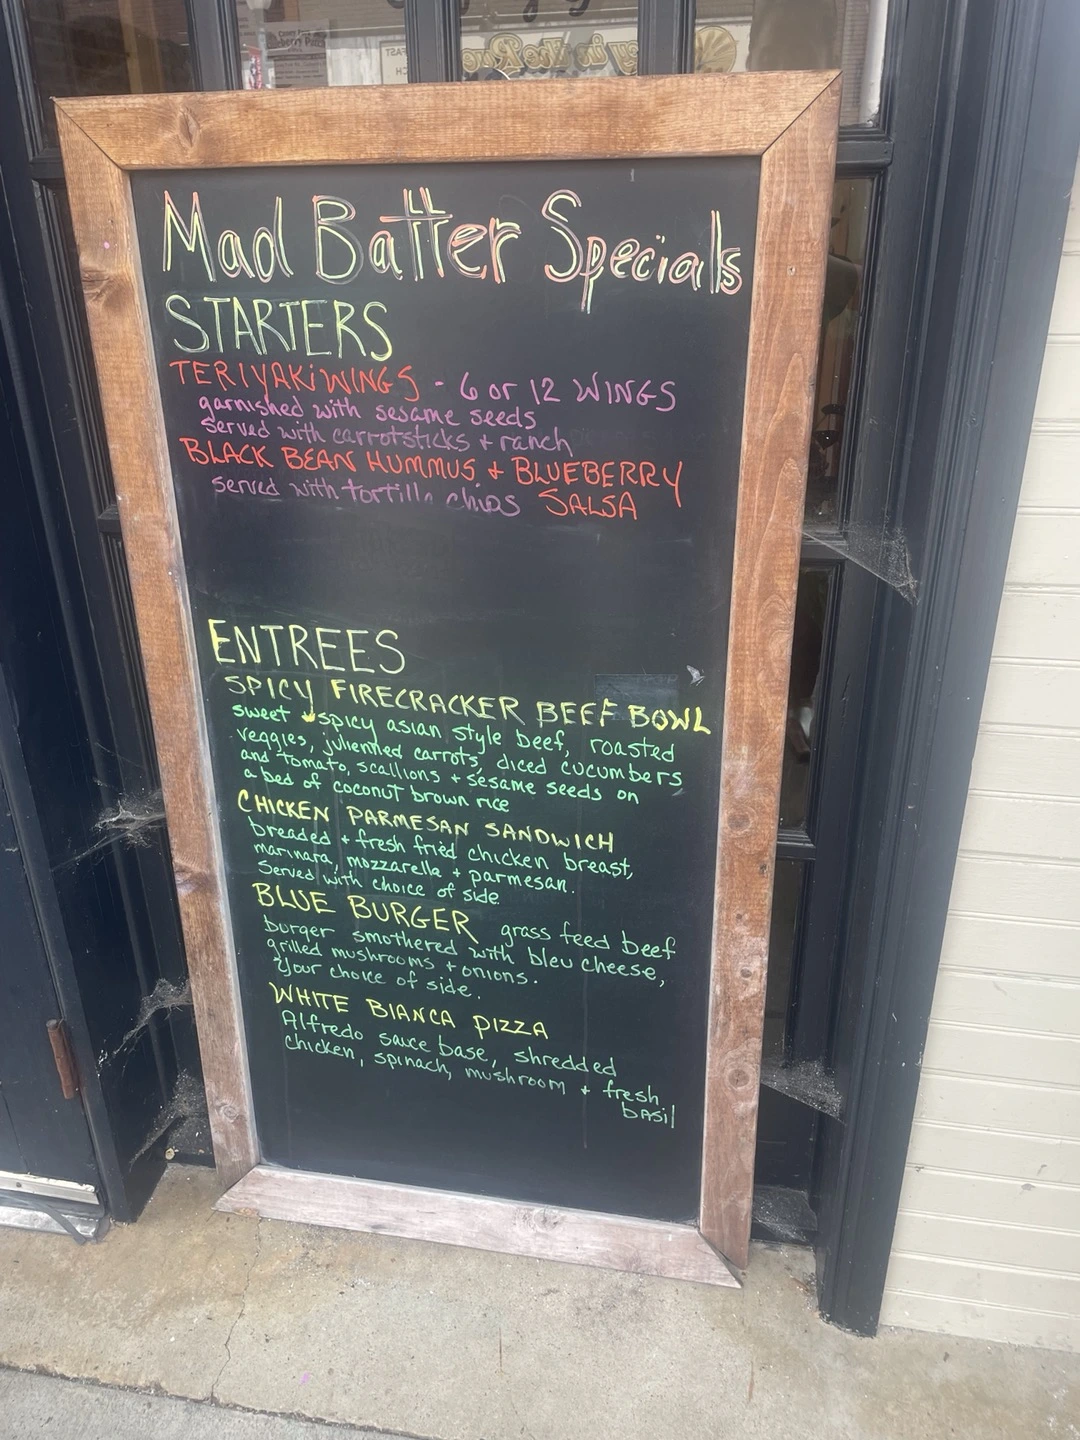 Mad Batter Specials
STARTERS
TERIYAKI WINGS - 6 or 12 WINGS
garnished with sesame seeds
served with carrot sticks + ranch
BLACK BEAN HUMMUS + BLUEBERRY
served with tortilla chips SALSA
ENTREES
SPICY FIRECRACKER BEEF BOWL
sweet + spicy asian style beef, roasted
veggies, julienned carrots, diced cucumbers
and tomato, scallions + sesame seeds on
a bed of coconut brown rice
CHICKEN PARMESAN SANDWICH
breaded + fresh fried chicken breast,
marinara, mozzarella + parmesan.
Served with choice of side
BLUE BURGER grass feed beef
burger smothered with bleu cheese,
grilled mushrooms + onions.
Your choice of side.
WHITE BIANCA PIZZA
Alfredo sauce base, shredded
chicken, spinach, mushroom + fresh
basil